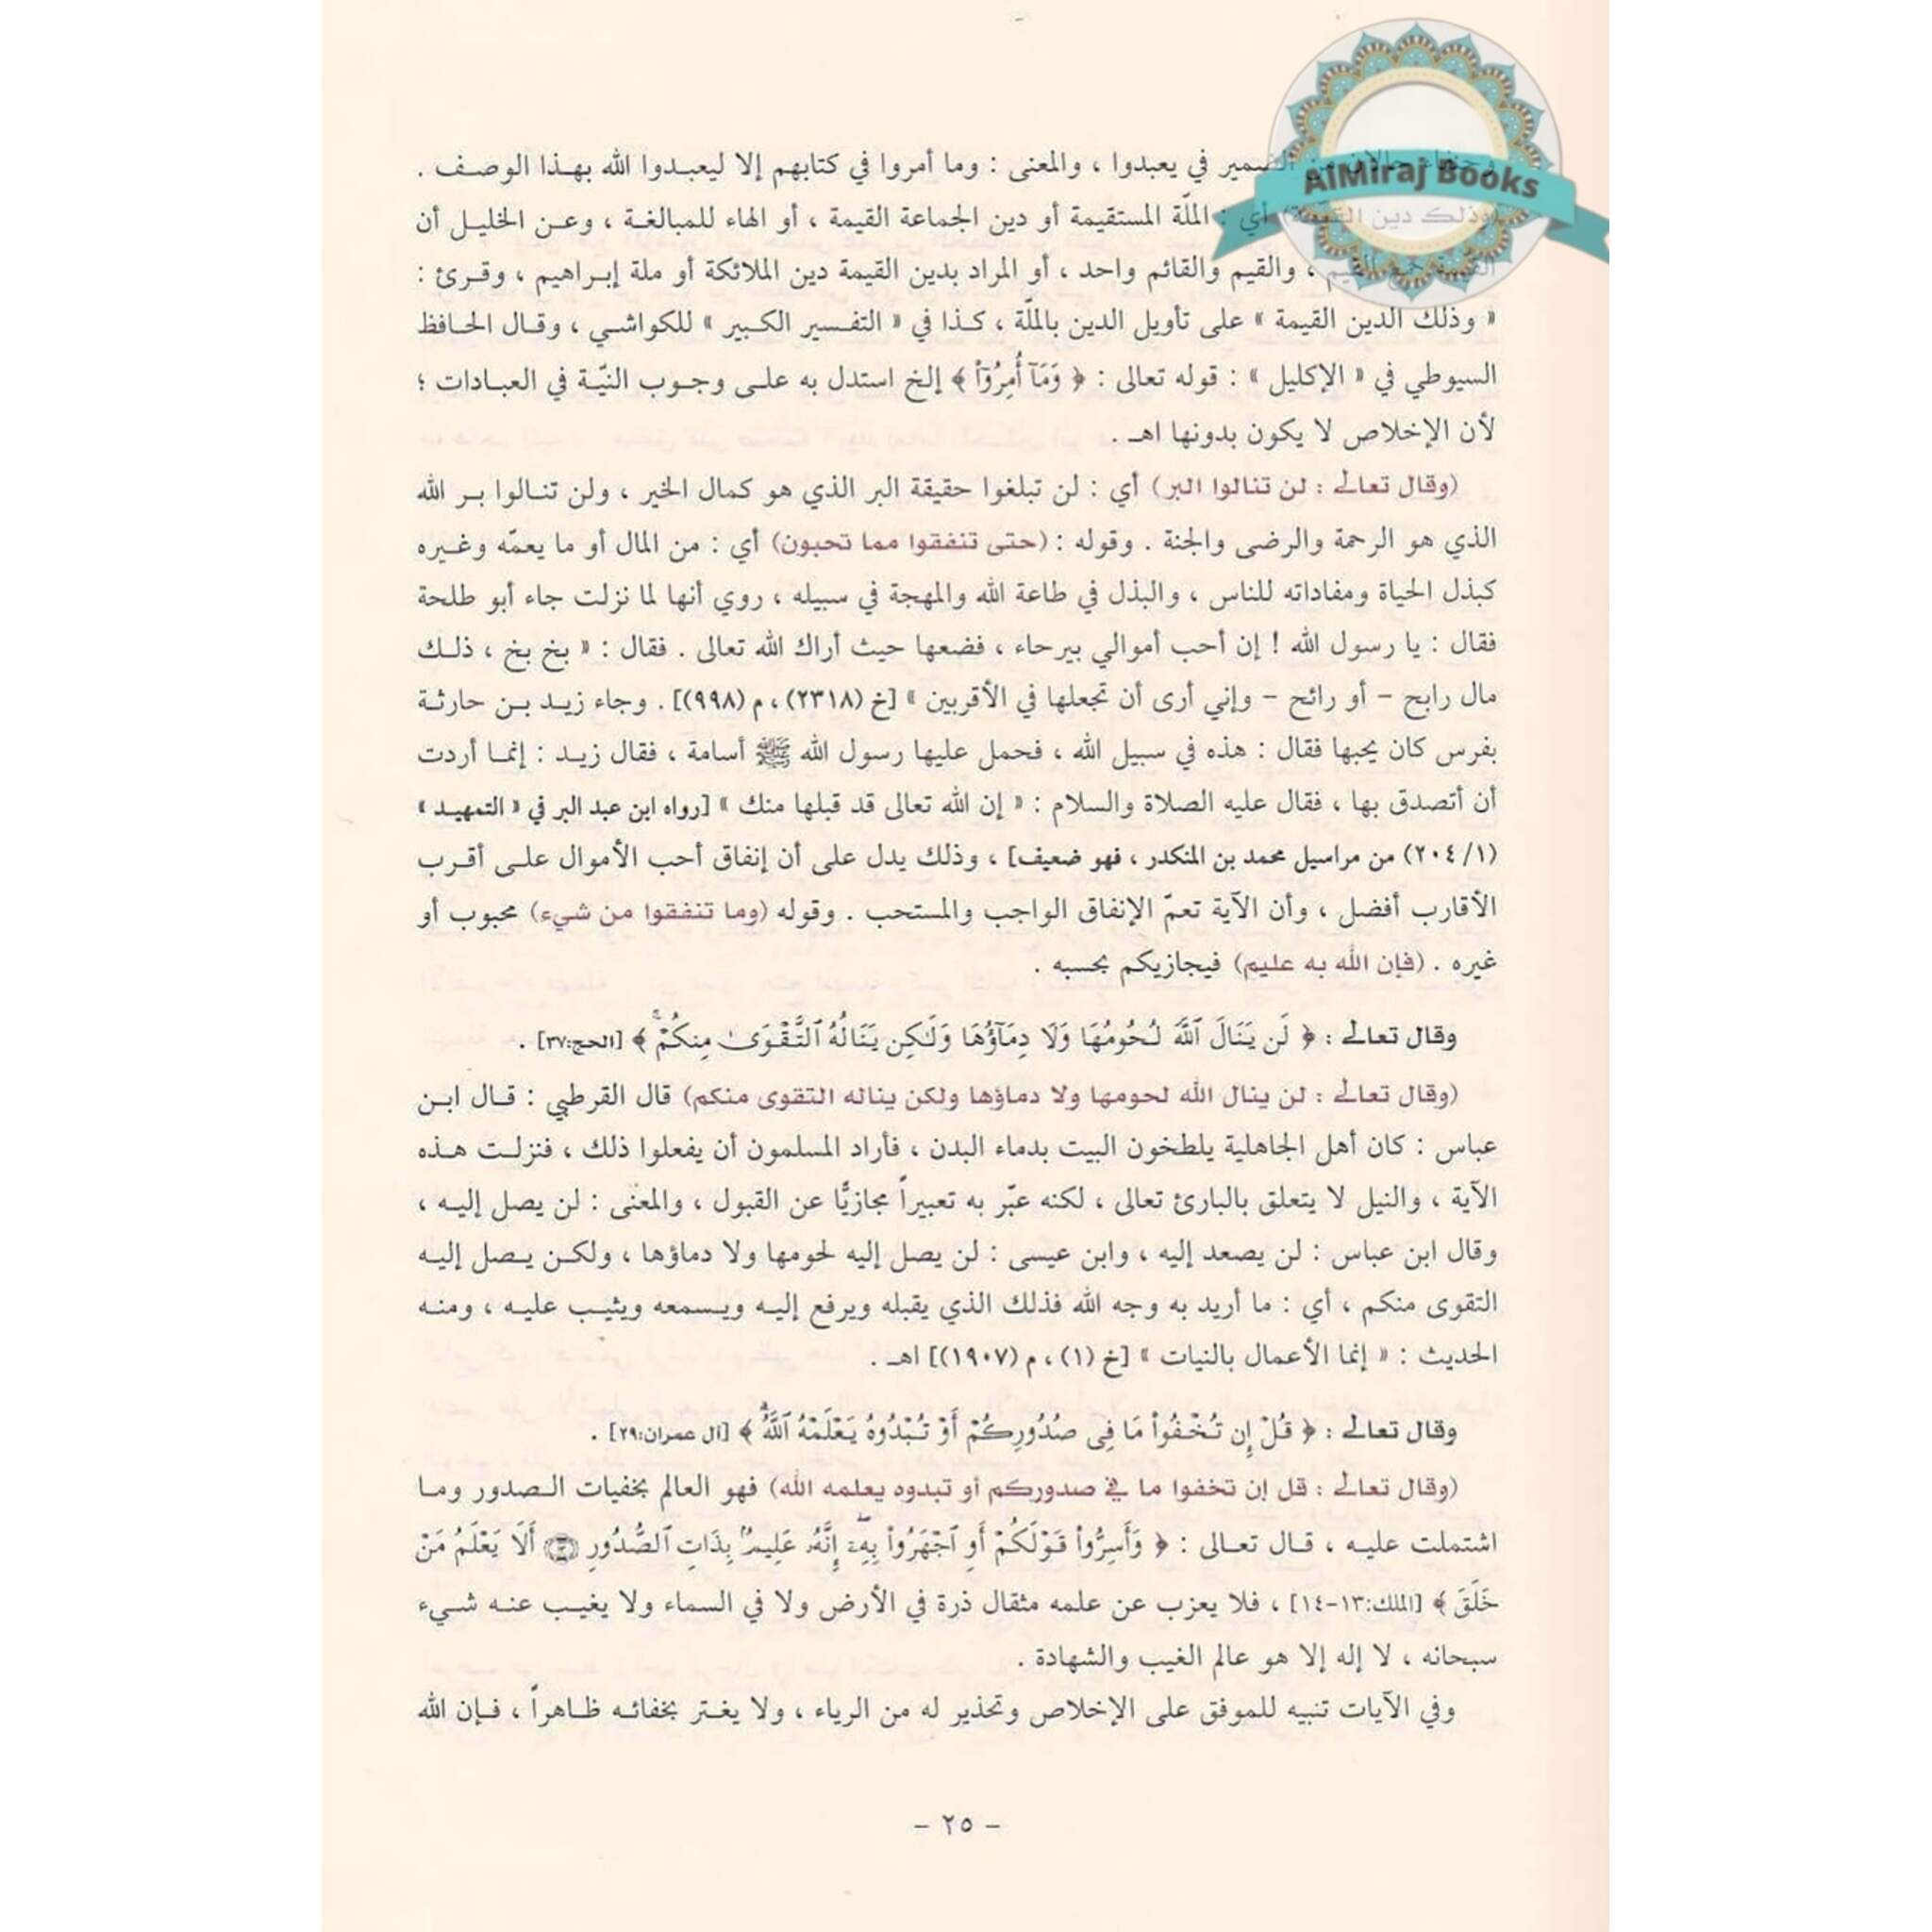 AlMiraj Books
وحنفاء حالان من الضمير في يعبدوا ، والمعنى : وما أمروا في كتابهم إلا ليعبـدوا الله بهـذا الوصـف .
(وذلك دين القيمة) أي : الملّة المستقيمة أو دين الجماعة القيمة ، أو الهاء للمبالغـة ، وعـن الخليـل أن
القيمة جمع القيم ، والقيم والقائم واحد ، أو المراد بدين القيمة دين الملائكة أو ملة إبـراهيم ، وقـرئ :
« وذلك الدين القيمة » على تأويل الدين بالملّة ، كـذا في « التفـسير الكـبير » للكواشـي ، وقـال الحـافظ
السيوطي في « الإكليل » : قوله تعالى : ﴿ وَمَآ أُمِرُوٓاْ ﴾ إلخ استدل به علـى وجـوب النيّـة في العبـادات ؛
لأن الإخلاص لا يكون بدونها اهـ .
(وقال تعالى : لن تنالوا البر) أي : لن تبلغوا حقيقة البر الذي هو كمال الخير ، ولن تنـالوا بـر الله
الذي هو الرحمة والرضى والجنة . وقوله : (حتى تنفقوا مما تحبون) أي : من المال أو ما يعمّه وغـيره
كبذل الحياة ومفاداته للناس ، والبذل في طاعة الله والمهجة في سبيله ، روي أنها لما نزلت جاء أبو طلحة
فقال : يا رسول الله ! إن أحب أموالي بيرحاء ، فضعها حيث أراك الله تعالى . فقال : « بخ بخ ، ذلـك
مال رابح – أو رائح – وإني أرى أن تجعلها في الأقربين » [خ (٢٣١٨) ، م (٩٩٨)] . وجاء زيـد بـن حارثـة
بفرس كان يحبها فقال : هذه في سبيل الله ، فحمل عليها رسول الله ﷺ أسامة ، فقال زيـد : إنمـا أردت
أن أتصدق بها ، فقال عليه الصلاة والسلام : « إن الله تعالى قد قبلها منك » [رواه ابن عبد البر في « التمهيـد »
(١/ ٢٠٤) من مراسيل محمد بن المنكدر ، فهو ضعيف] ، وذلك يدل على أن إنفاق أحب الأموال علـى أقـرب
الأقارب أفضل ، وأن الآية تعمّ الإنفاق الواجب والمستحب . وقوله (وما تنفقوا من شيء) محبوب أو
غيره . (فإن الله به عليم) فيجازيكم بحسبه .
وقال تعالى : ﴿ لَن يَنَالَ ٱللَّهَ لُحُومُهَا وَلَا دِمَآؤُهَا وَلَٰكِن يَنَالُهُ ٱلتَّقْوَىٰ مِنكُمْ ۚ ﴾ [الحج:٣٧] .
(وقال تعالى : لن ينال الله لحومها ولا دماؤها ولكن يناله التقوى منكم) قال القرطبي : قـال ابـن
عباس : كان أهل الجاهلية يلطخون البيت بدماء البدن ، فأراد المسلمون أن يفعلوا ذلك ، فنزلـت هـذه
الآية ، والنيل لا يتعلق بالبارئ تعالى ، لكنه عبّر به تعبيراً مجازيًّا عن القبول ، والمعنى : لن يصل إليـه ،
وقال ابن عباس : لن يصعد إليه ، وابن عيسى : لن يصل إليه لحومها ولا دماؤها ، ولكـن يـصل إليـه
التقوى منكم ، أي : ما أريد به وجه الله فذلك الذي يقبله ويرفع إليـه ويـسمعه ويثيـب عليـه ، ومنـه
الحديث : « إنما الأعمال بالنيات » [خ (١) ، م (١٩٠٧)] اهـ .
وقال تعالى : ﴿ قُلْ إِن تُخْفُواْ مَا فِى صُدُورِكُمْ أَوْ تُبْدُوهُ يَعْلَمْهُ ٱللَّهُ ۗ ﴾ [آل عمران:٢٩] .
(وقال تعالى : قل إن تخفوا ما في صدوركم أو تبدوه يعلمه الله) فهو العالم بخفيات الـصدور ومـا
اشتملت عليـه ، قـال تعـالى : ﴿ وَأَسِرُّواْ قَوْلَكُمْ أَوِ ٱجْهَرُواْ بِهِۦٓ ۖ إِنَّهُۥ عَلِيمٌۢ بِذَاتِ ٱلصُّدُورِ ۝١٣ أَلَا يَعْلَمُ مَنْ
خَلَقَ ﴾ [الملك:١٣-١٤] ، فلا يعزب عن علمه مثقال ذرة في الأرض ولا في السماء ولا يغيـب عنـه شـيء
سبحانه ، لا إله إلا هو عالم الغيب والشهادة .
وفي الآيات تنبيه للموفق على الإخلاص وتحذير له من الرياء ، ولا يغـتر بخفائـه ظـاهراً ، فـإن الله
– ٢٥ –